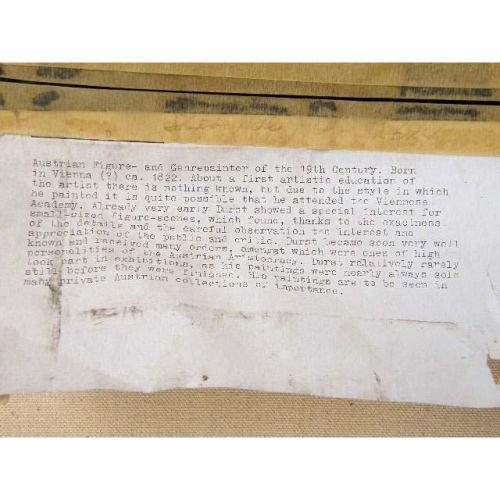 Austrian Figure- and Genrepainter of the 19th Century. Born
in Vienna (?) ca. 1822. About a first artistic education of
the artist there is nothing known, but due to the style in which
he painted it is quite possible that he attended the Viennese
Academy. Already very early Durst showed a special interest for
small-sized figure-scenes, which found, thanks to the exactness
of the details and the careful observation the interest and
appreciation of the public and critic. Durst became soon very well
known and received many orders, amongst which were ones of high
personalities of the Austrian Aristocracy. Durst relatively rarely
took part in exhibitions, as his paintings were nearly always sold
still before they were finished. His paintings are to be seen in
many private Austrian collections of importance.